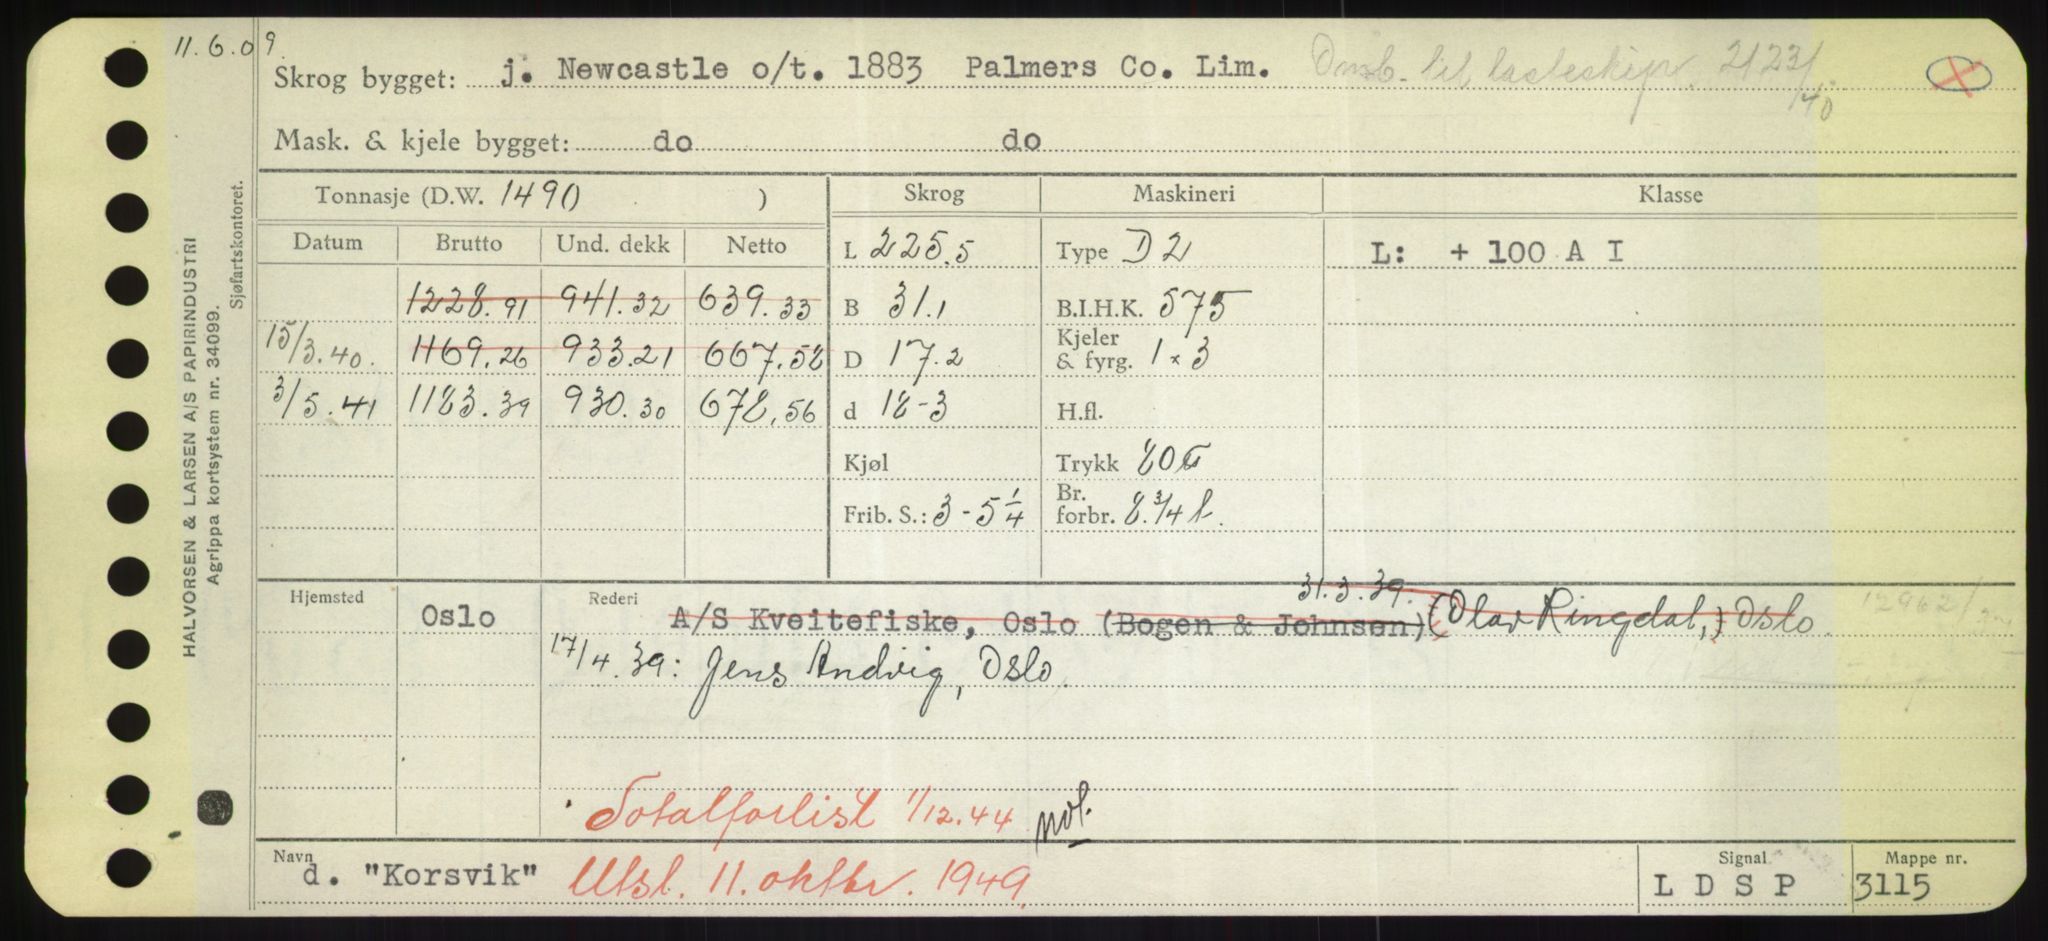 11.6.09
Skrog bygget: j. Newcastle o/t. 1883 Palmers Co. Lim. Omb. til lasteskip 2123/40
Mask. & kjele bygget: do do
Tonnasje (D.W. 1490 ) Skrog Maskineri Klasse
Datum Brutto Und. dekk Netto L 225.5 Type D 2 L: + 100 A I
1228.91 941.32 639.33 B 31.1 B.I.H.K. 575
15/3.40. 1169.26 933.21 667.58 D 17.2 Kjeler & fyrg. 1 x 3
3/5.41 1183.39 930.30 678.56 d 18-3 H.fl.
Kjøl Trykk 80
Frib. S.: 3-5 1/4 Br. forbr. 8.3/4 t.
31.3.39.
Hjemsted Oslo Rederi A/S Kveitefiske, Oslo (Bogen & Johnsen) (Olav Ringdal,) Oslo. 12962/
17/4.39: Jens Andvig, Oslo.
Totalforlist 1/12.44
Navn d. "Korsvik" Utsl. 11. oktbr. 1949. Signal L D S P Mappe nr. 3115
HALVORSEN & LARSEN A/S PAPIRINDUSTRI
Agrippa kortsystem nr. 34099.
Sjøfartskontoret.